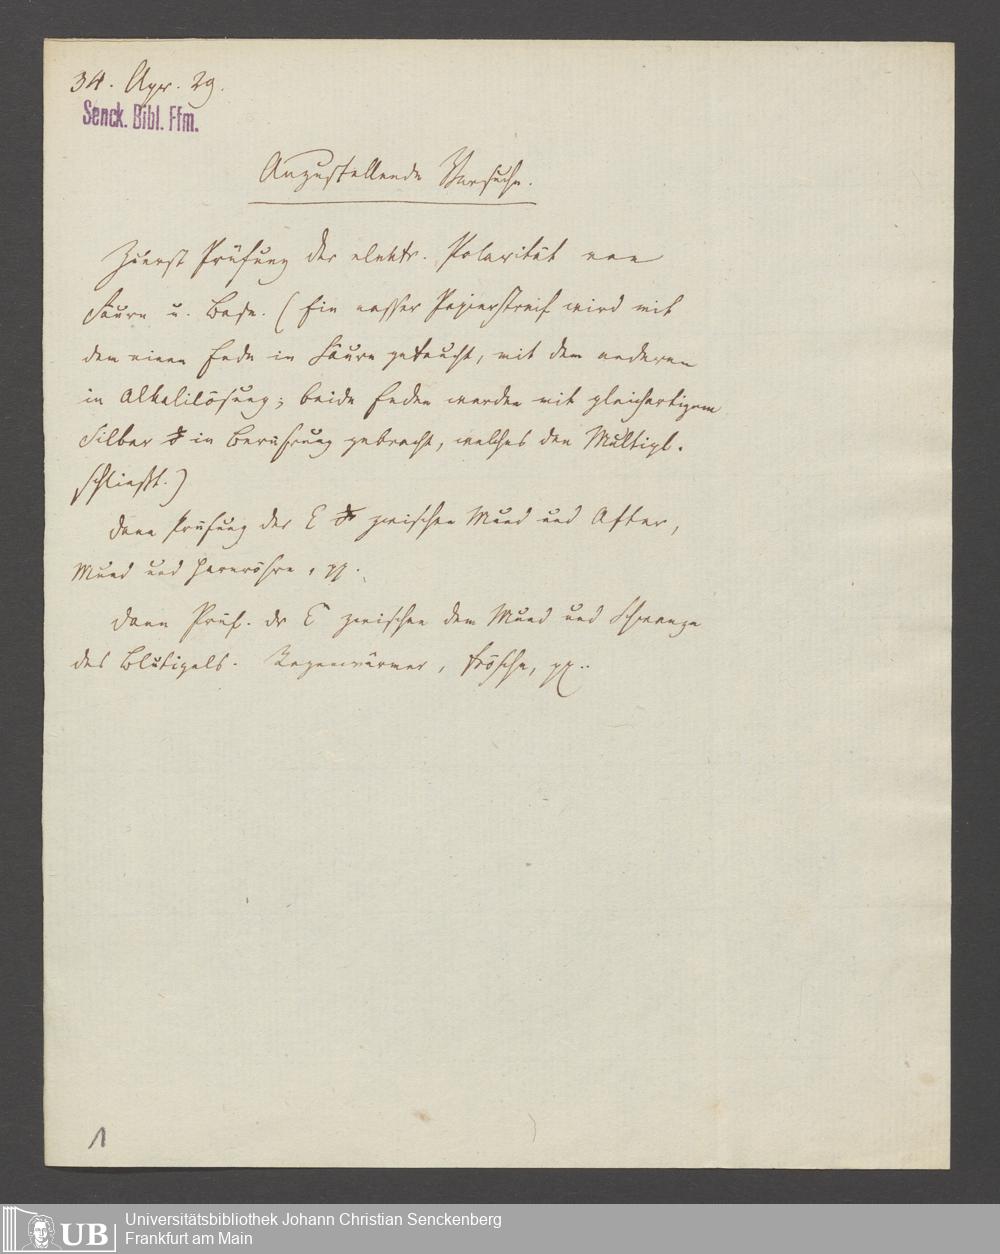 34. Apr. 29.
Senck. Bibl. Ffm.
Anzustellende Versuche.
Zuerst Prüfung der elektr. Polarität von
Säure u. Base. (Ein nasser Papierstreif wird mit
dem einen Ende in Säure getaucht, mit dem anderen
in Alkalilösung; beide Enden werden mit gleichartigem
Silber in Berührung gebracht, welches den Multipl.
schließt.)
Dann Prüfung der E zwischen Mund und After,
Mund und Harnröhre, pp.
Dann Prüf. der E zwischen dem Mund und Schwanze
des Blutigels. Regenwürmer, Frösche, pp.
1
UB
Universitätsbibliothek Johann Christian Senckenberg
Frankfurt am Main